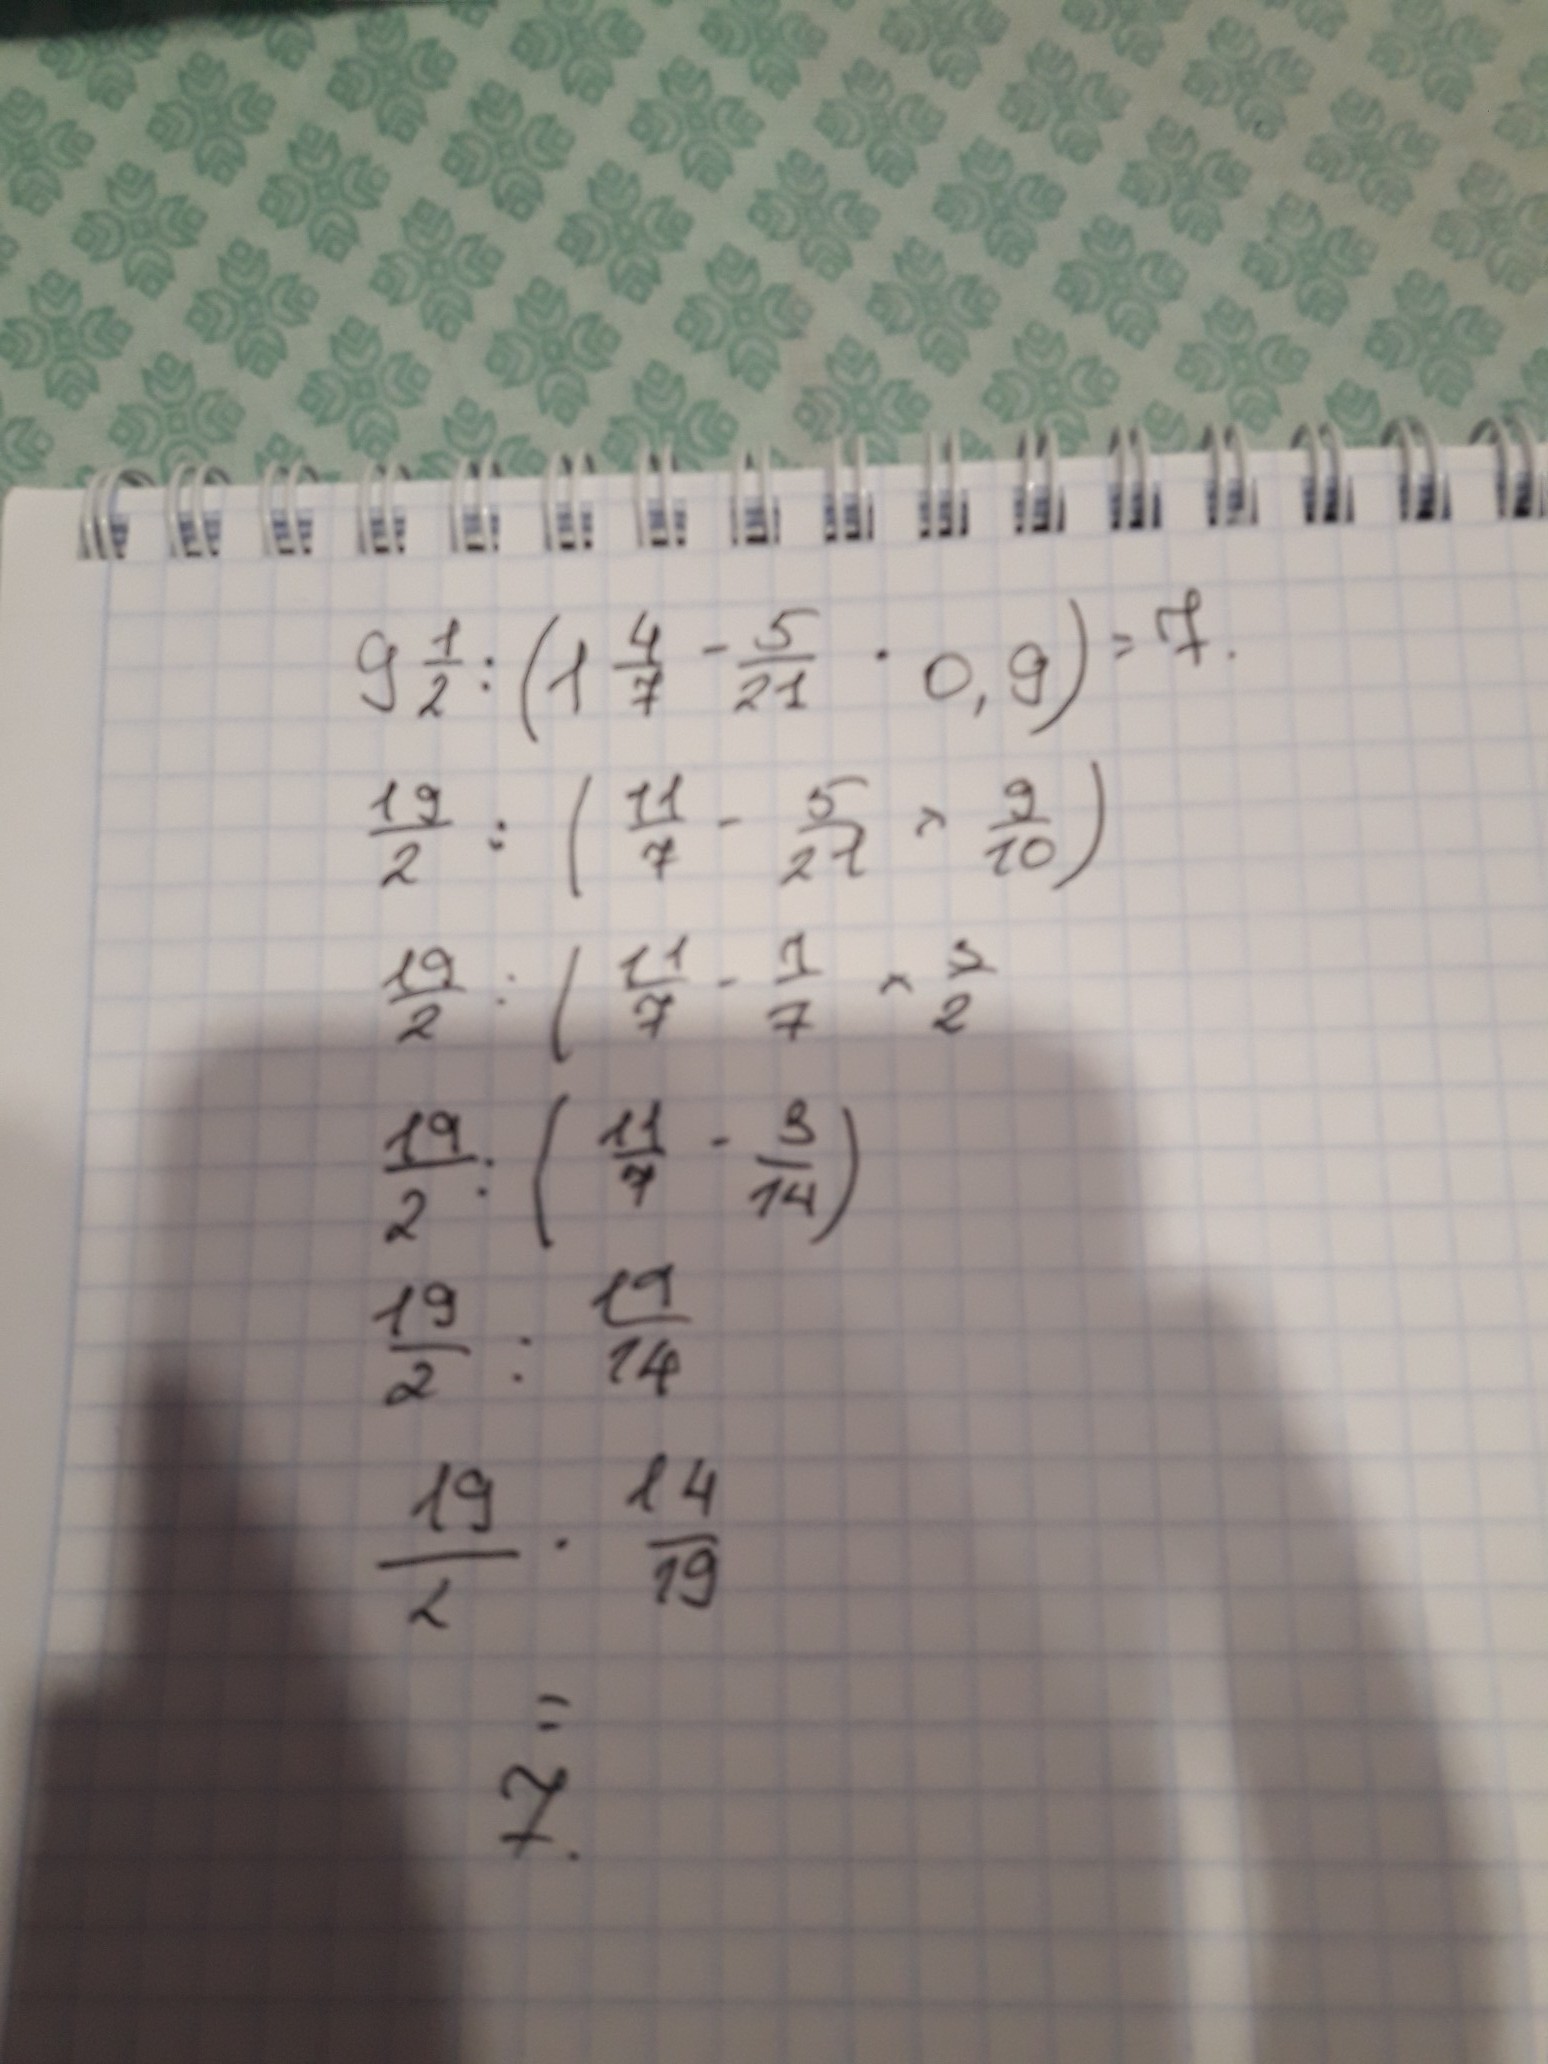 9 1/2 : (1 4/7 - 5/21 · 0,9) = 7.
19/2 : (11/7 - 5/21 × 9/10)
19/2 : (11/7 - 1/7 × 3/2
19/2 : (11/7 - 3/14)
19/2 : 19/14
19/2 · 14/19
=
7.